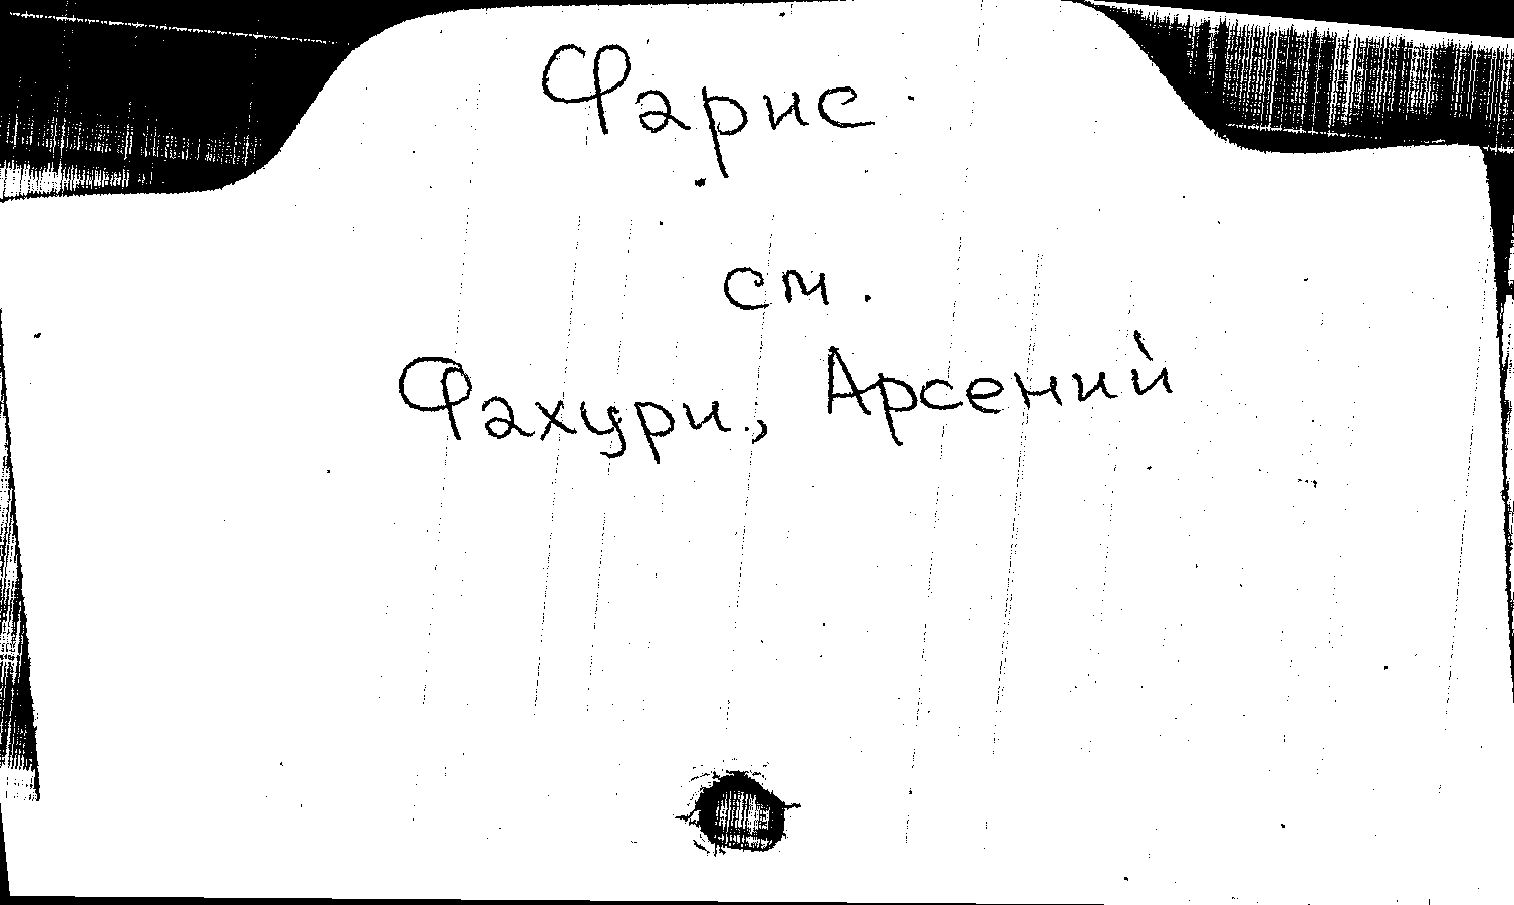 Фарис
см.
Фахури, Арсений